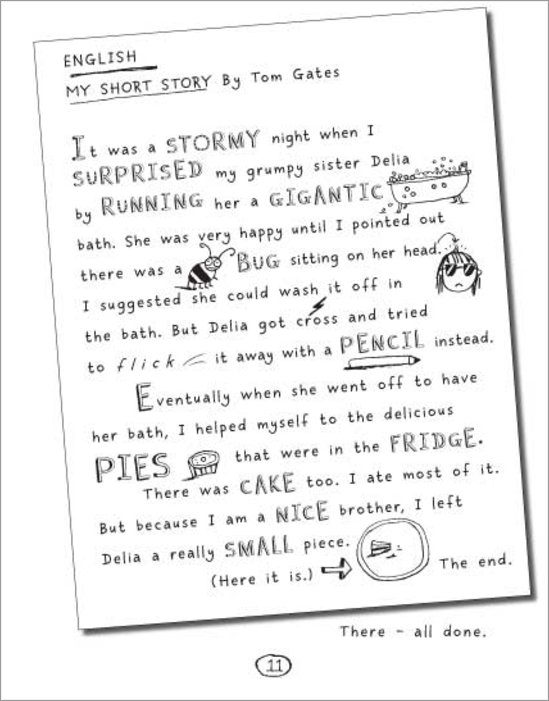 ENGLISH
MY SHORT STORY By Tom Gates
It was a STORMY night when I
SURPRISED my grumpy sister Delia
by RUNNING her a GIGANTIC
bath. She was very happy until I pointed out
there was a BUG sitting on her head.
I suggested she could wash it off in
the bath. But Delia got cross and tried
to flick it away with a PENCIL instead.
Eventually when she went off to have
her bath, I helped myself to the delicious
PIES that were in the FRIDGE.
There was CAKE too. I ate most of it.
But because I am a NICE brother, I left
Delia a really SMALL piece.
(Here it is.) The end.
There - all done.
11